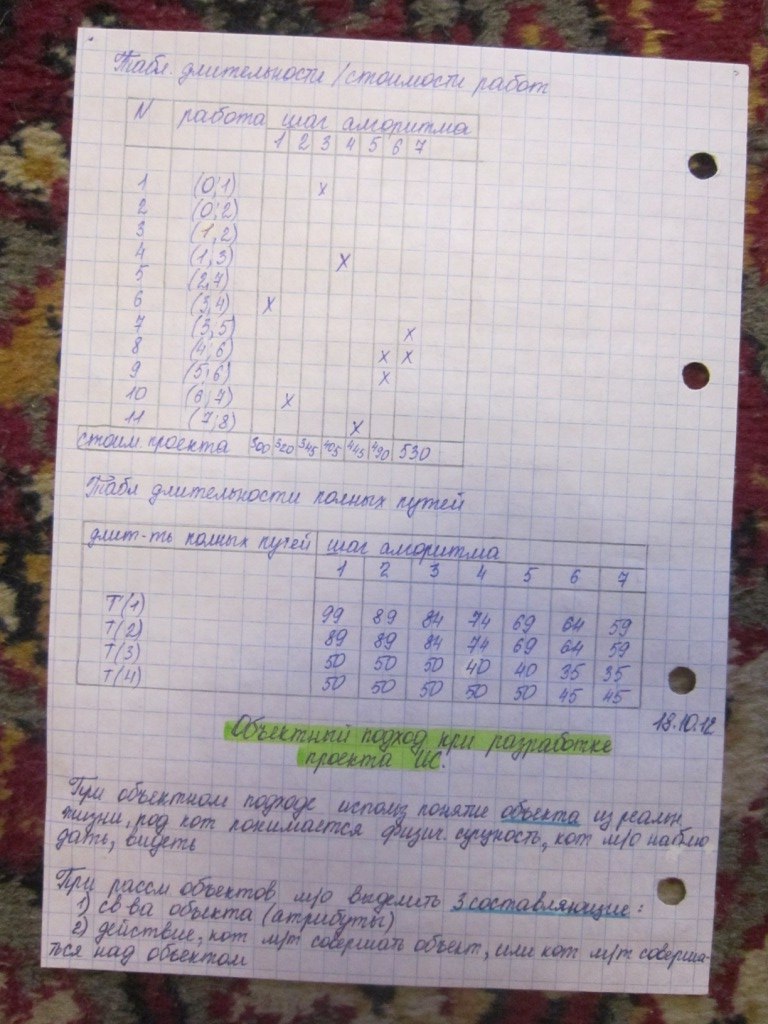 Табл. длительности/стоимости работ
N работа шаг алгоритма
1 2 3 4 5 6 7
1 (0;1) x
2 (0;2)
3 (1,2)
4 (1,3) x
5 (2,7)
6 (3,4) x
7 (3,5) x
8 (4;6) x x
9 (5;6) x
10 (6;7) x
11 (7;8) x
стоим проекта 300 320 345 405 445 490 530
Табл длительности полных путей
длит-ть полных путей шаг алгоритма
1 2 3 4 5 6 7
T(1) 99 89 84 74 69 64 59
T(2) 89 89 84 74 69 64 59
T(3) 50 50 50 40 40 35 35
T(4) 50 50 50 50 50 45 45
19.10.12
Объектный подход при разработке
проекта ИС.
При объектном подходе использ понятие объекта из реальн
жизни, под кот понимается физич. сущность, кот м/о наблю
дать, видеть
При рассм объектов м/о выделить 3 составляющие:
1) св ва объекта (атрибуты)
2) действие, кот м/т совершать объект, или кот м/т соверша-
ться над объектом